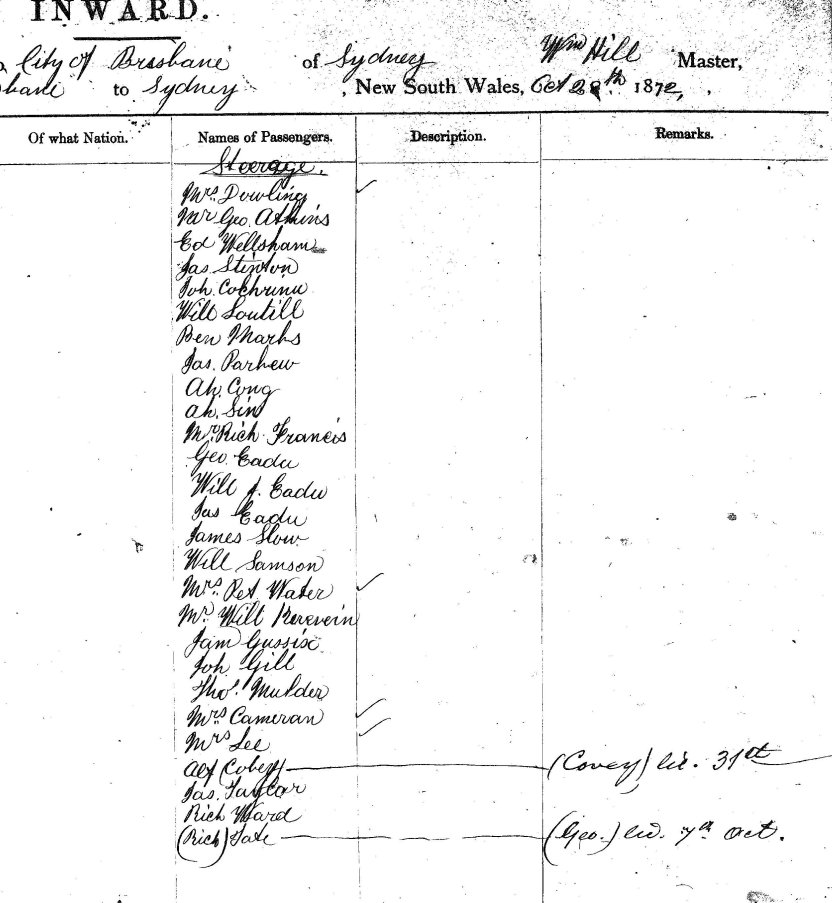 INWARD.
City of Brisbane of Sydney Wm Hill Master,
sbane to Sydney, New South Wales, Oct 28th 1872,
Of what Nation. Names of Passengers. Description. Remarks.
Steerage.
Mrs. Dowling
Mr Geo. Atkins
Ed Wellsham
Jas Stinton
Joh. Cochrane
Will Soutill
Ben Marks
Jas. Parhew
Ah. Cong
Ah. Sin
Mr. Rich Francis
Geo. Eadu
Will J. Eadu
Jas Eadu
James Slow
Will Samson
Mrs. Pet Water
Mr. Will
Jam Gussix
Joh Gill
Thos. Mulder
Mrs Cameran
Mrs Lee
Alf (Cobey) (Covey) 31st
Jas. Taylor
Rich Ward
(Rich) Tate (Geo.) 7th Oct.